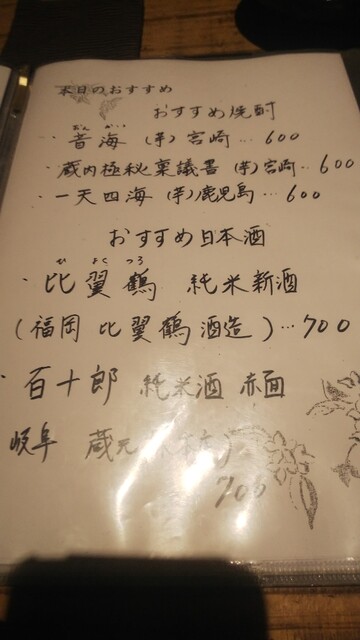 本日のおすすめ
おすすめ焼酎
おん かい
・音海 (芋) 宮崎…600
・蔵内極秘稟議書 (芋) 宮崎…600
・一天四海 (芋) 鹿児島…600
おすすめ日本酒
ひ よく つる
・比翼鶴 純米新酒
(福岡 比翼鶴酒造)…700
・百十郎 純米酒 赤面
岐阜 蔵元
700